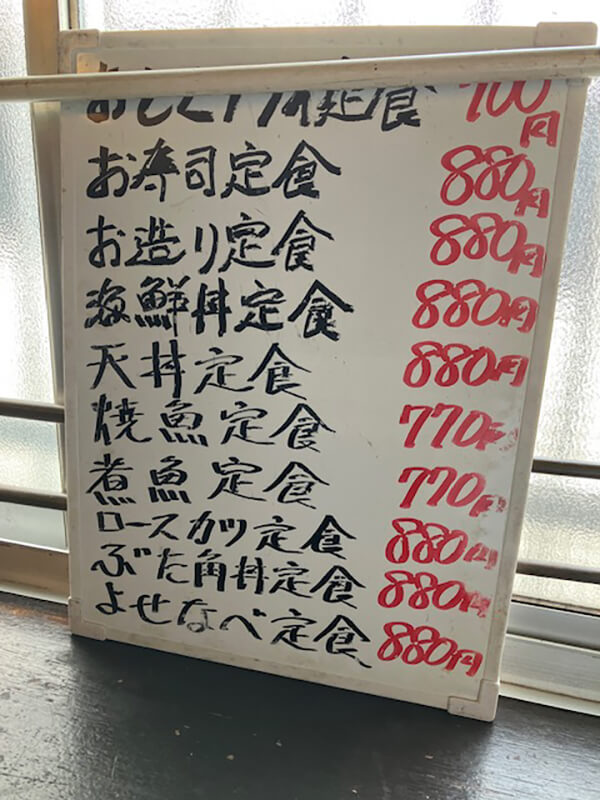 定食 700円
お寿司定食 880円
お造り定食 880円
海鮮丼定食 880円
天丼定食 880円
焼魚定食 770円
煮魚定食 770円
ロースカツ定食 880円
ぶた角丼定食 880円
よせなべ定食 880円